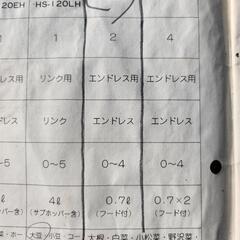 120EH HS-120LH
1 1 2 4
ドレス用 リンク用 エンドレス用 エンドレス用
ドレス リンク エンドレス エンドレス
~5 0~5 0~4 0~4
ℓ 4ℓ 0.7ℓ 0.7×2
パー含) (サブホッパー含) (フード付) (フード付)
菜・ホー 大豆・小豆・コー 大根・白菜・小松菜・野沢菜・